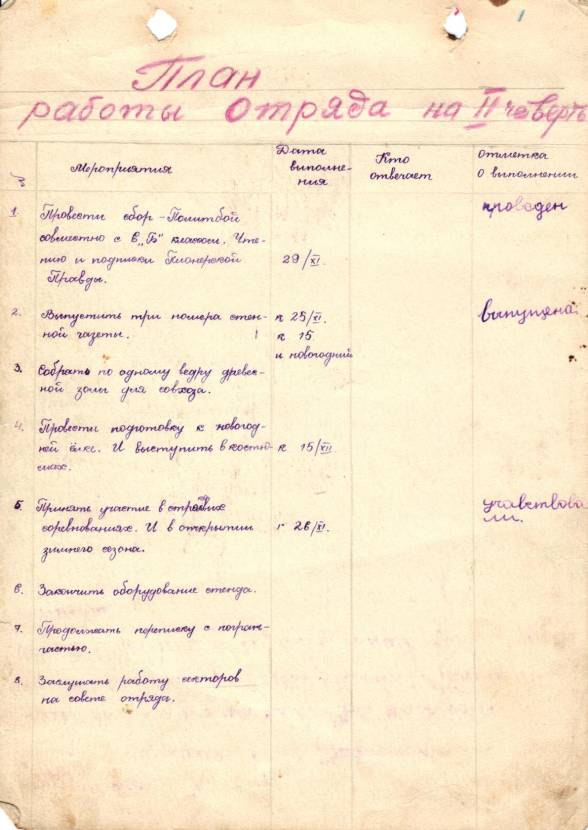 План
работы отряда на II четверть
№ Мероприятия Дата выполне-ния Кто отвечает Отметка о выполнении
1. Провести сбор - Политбой проведен
совместно с 6 „Б" классом. Чте-
нию и подписки Пионерской 29/XI
Правды.
2. Выпустить три номера стен- к 25/XI. выпущено.
ной газеты. к 15
и новогодний
3. Собрать по одному ведру древес-
ной золы для совхоза.
4. Провести подготовку к новогод-
ней ёлке. И выступить в костю- к 15/XII
мах.
5. Принять участие в участвова
соревнованиях. И в открытии 26/XI. ли.
зимнего сезона.
6. Закончить оборудование стенда.
7. Продолжать переписку с погран-
частью.
8. Заслушать работу секторов
на совете отряда.